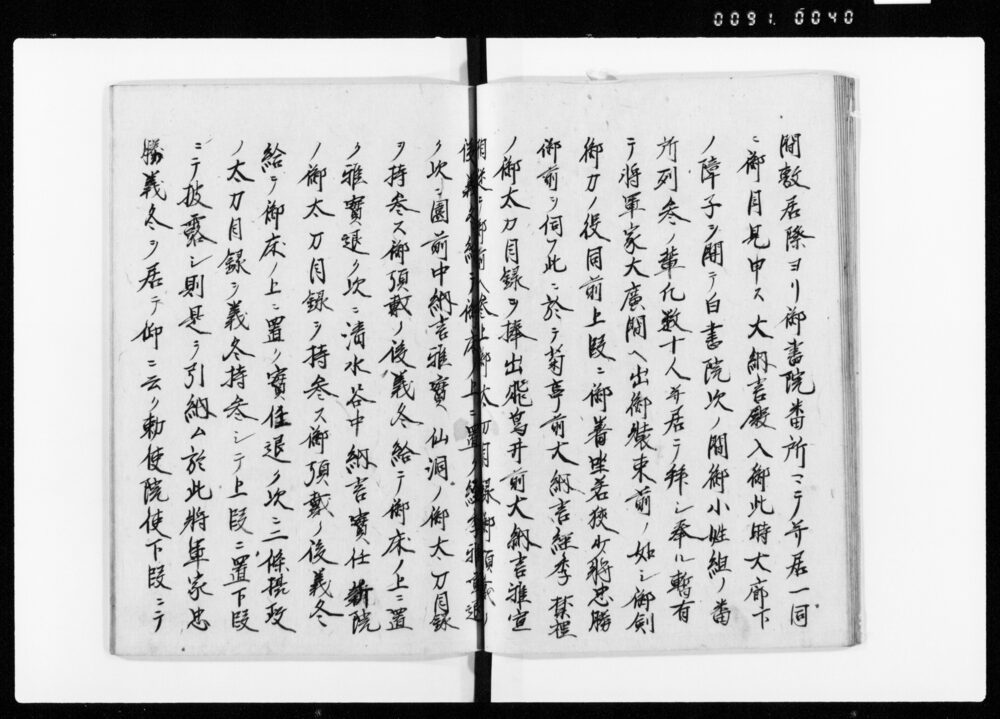 0091. 0040
間敷居際ヨリ御書院番所マテ并居一同
ニ御目見申ス大納言殿入御此時大廊下
ノ障子ヲ開テ白書院次ノ間御小姓組ノ番
所列参ノ輩凡数十人并居テ拝シ奉ル暫有
テ将軍家大廣間ヘ出御装束前ノ如シ御剣
御刀ノ役同前上段ニ御着坐若狭少将忠勝
御前ヲ伺フ此ニ於テ菊亭前大納言経季禁裡
ノ御太刀目録ヲ捧出飛鳥井前大納言雅宣
相従テ御前ヘ参上御太刀目録御頂戴ノ
後義冬給テ御床ノ上ニ置ク経季雅宣退
ク次ニ園前中納言雅寳仙洞ノ御太刀目録
ヲ持参ス御頂戴ノ後義冬給テ御床ノ上ニ置
ク雅寳退ク次ニ清水谷中納言實任新院
ノ御太刀目録ヲ持参ス御頂戴ノ後義冬
給テ御床ノ上ニ置ク實任退ク次ニ三條摂政
ノ太刀目録ヲ義冬持参シテ上段ニ置下段
ニテ披露シ則是ヲ引納ム於此将軍家忠
勝義冬ヲ居テ仰ニ云ク勅使院使下段ニテ